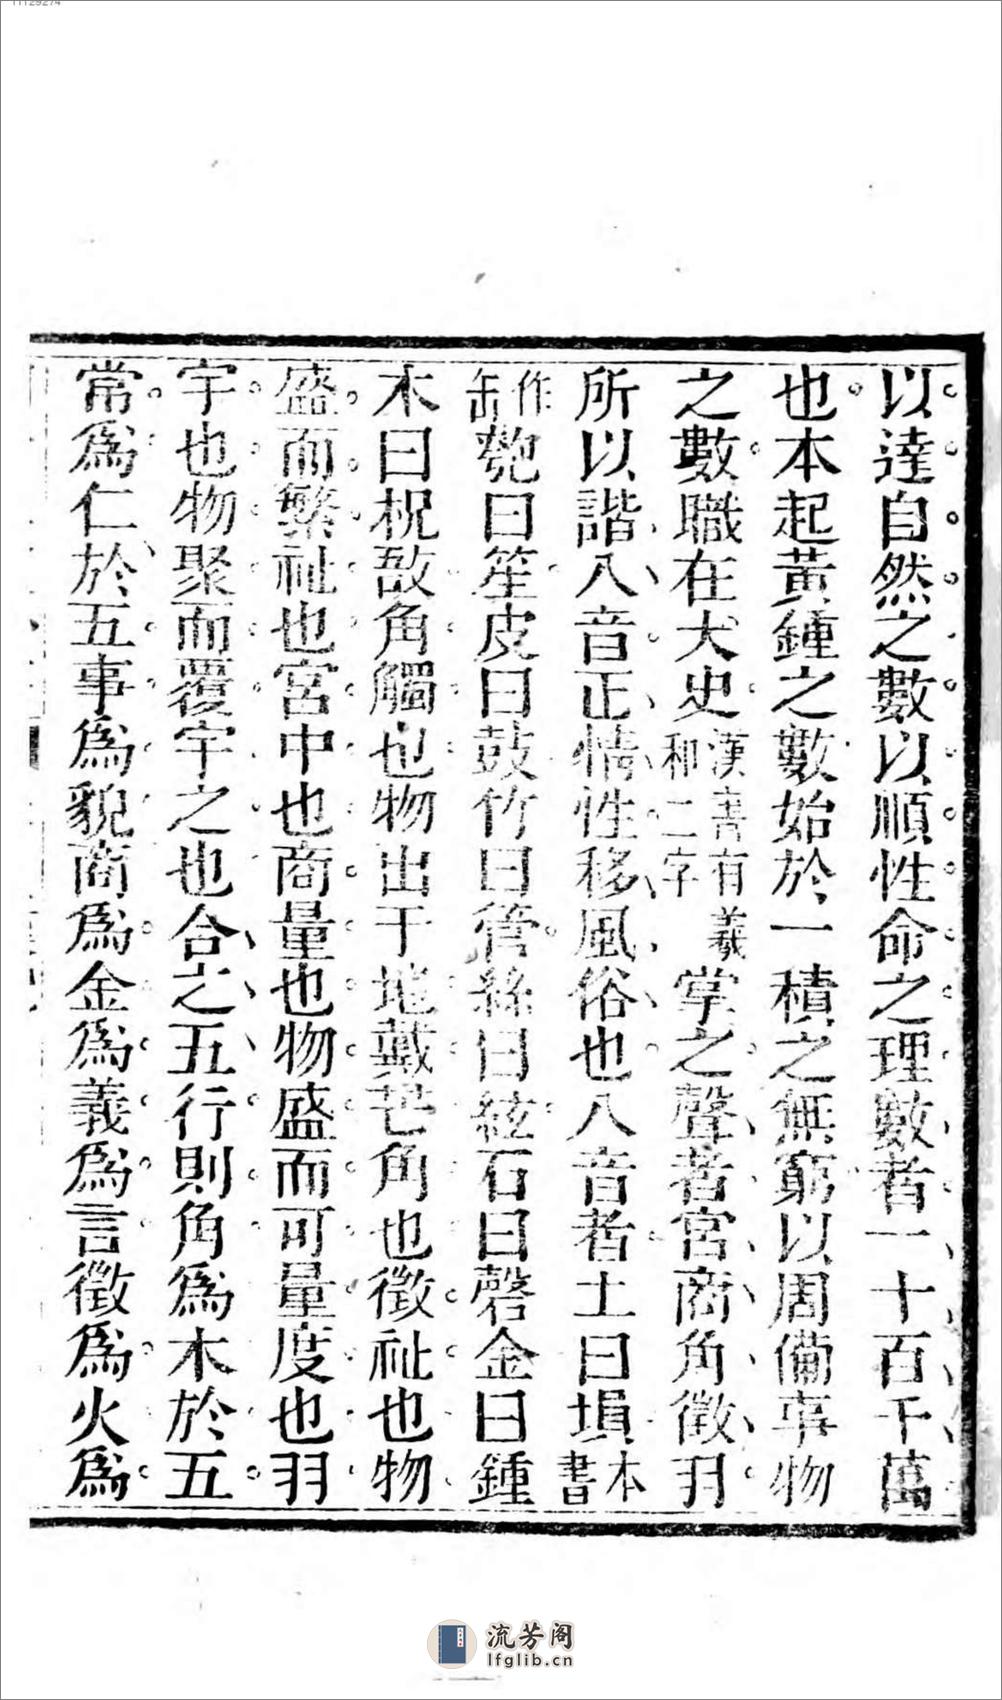 11129274
以達自然之數以順性命之理數者一十百千萬
也本起黃鍾之數始於一積之無窮以周備事物
之數職在大史漢書有羲和二字掌之聲者宮商角徵羽
所以諧八音正情性移風俗也八音者土曰塤本書
作缶匏曰笙皮曰鼓竹曰管絲曰絃石曰磬金曰鍾
木曰柷敔角觸也物出于地戴芒角也徵祉也物
盛而繁祉也宮中也商量也物盛而可量度也羽
宇也物聚而覆宇之也合之五行則角為木於五
常為仁於五事為貌商為金為義為言徵為火為
流芳阁
lfglib.cn